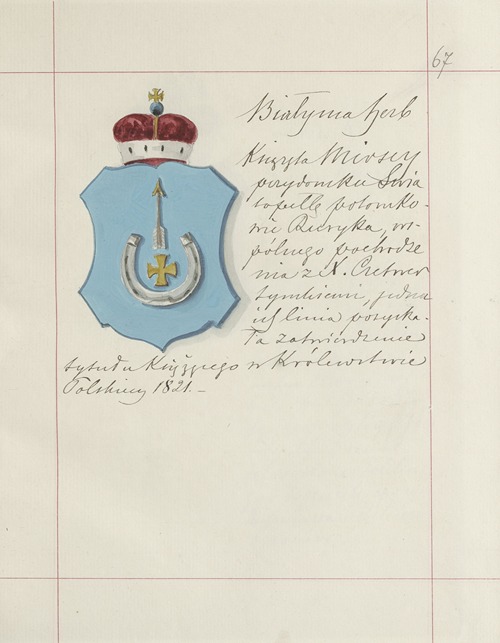 67
Białynia herb
Książęta Mirscy
przydomku Świa
topełłę potomko-
wie Ruryka, ws-
pólnego pochodze
nia z X. Czetwer
tyńskiemi, jedna
ich linia pozyska-
ła zatwierdzenie
tytułu Książęcego w Królewstwie
Polskiem 1821.-